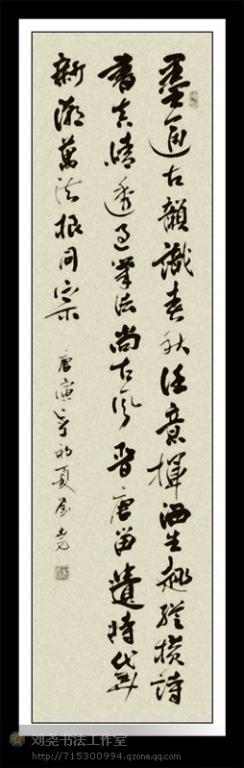 墨通古韻識春秋任意揮洒生趣縱橫詩
書真情透過筆法尚古風晋唐留遺時代弄
新潮萬法根同宗
庚寅年初夏劉堯
刘尧书法工作室
http://715300994.qzone.qq.com/